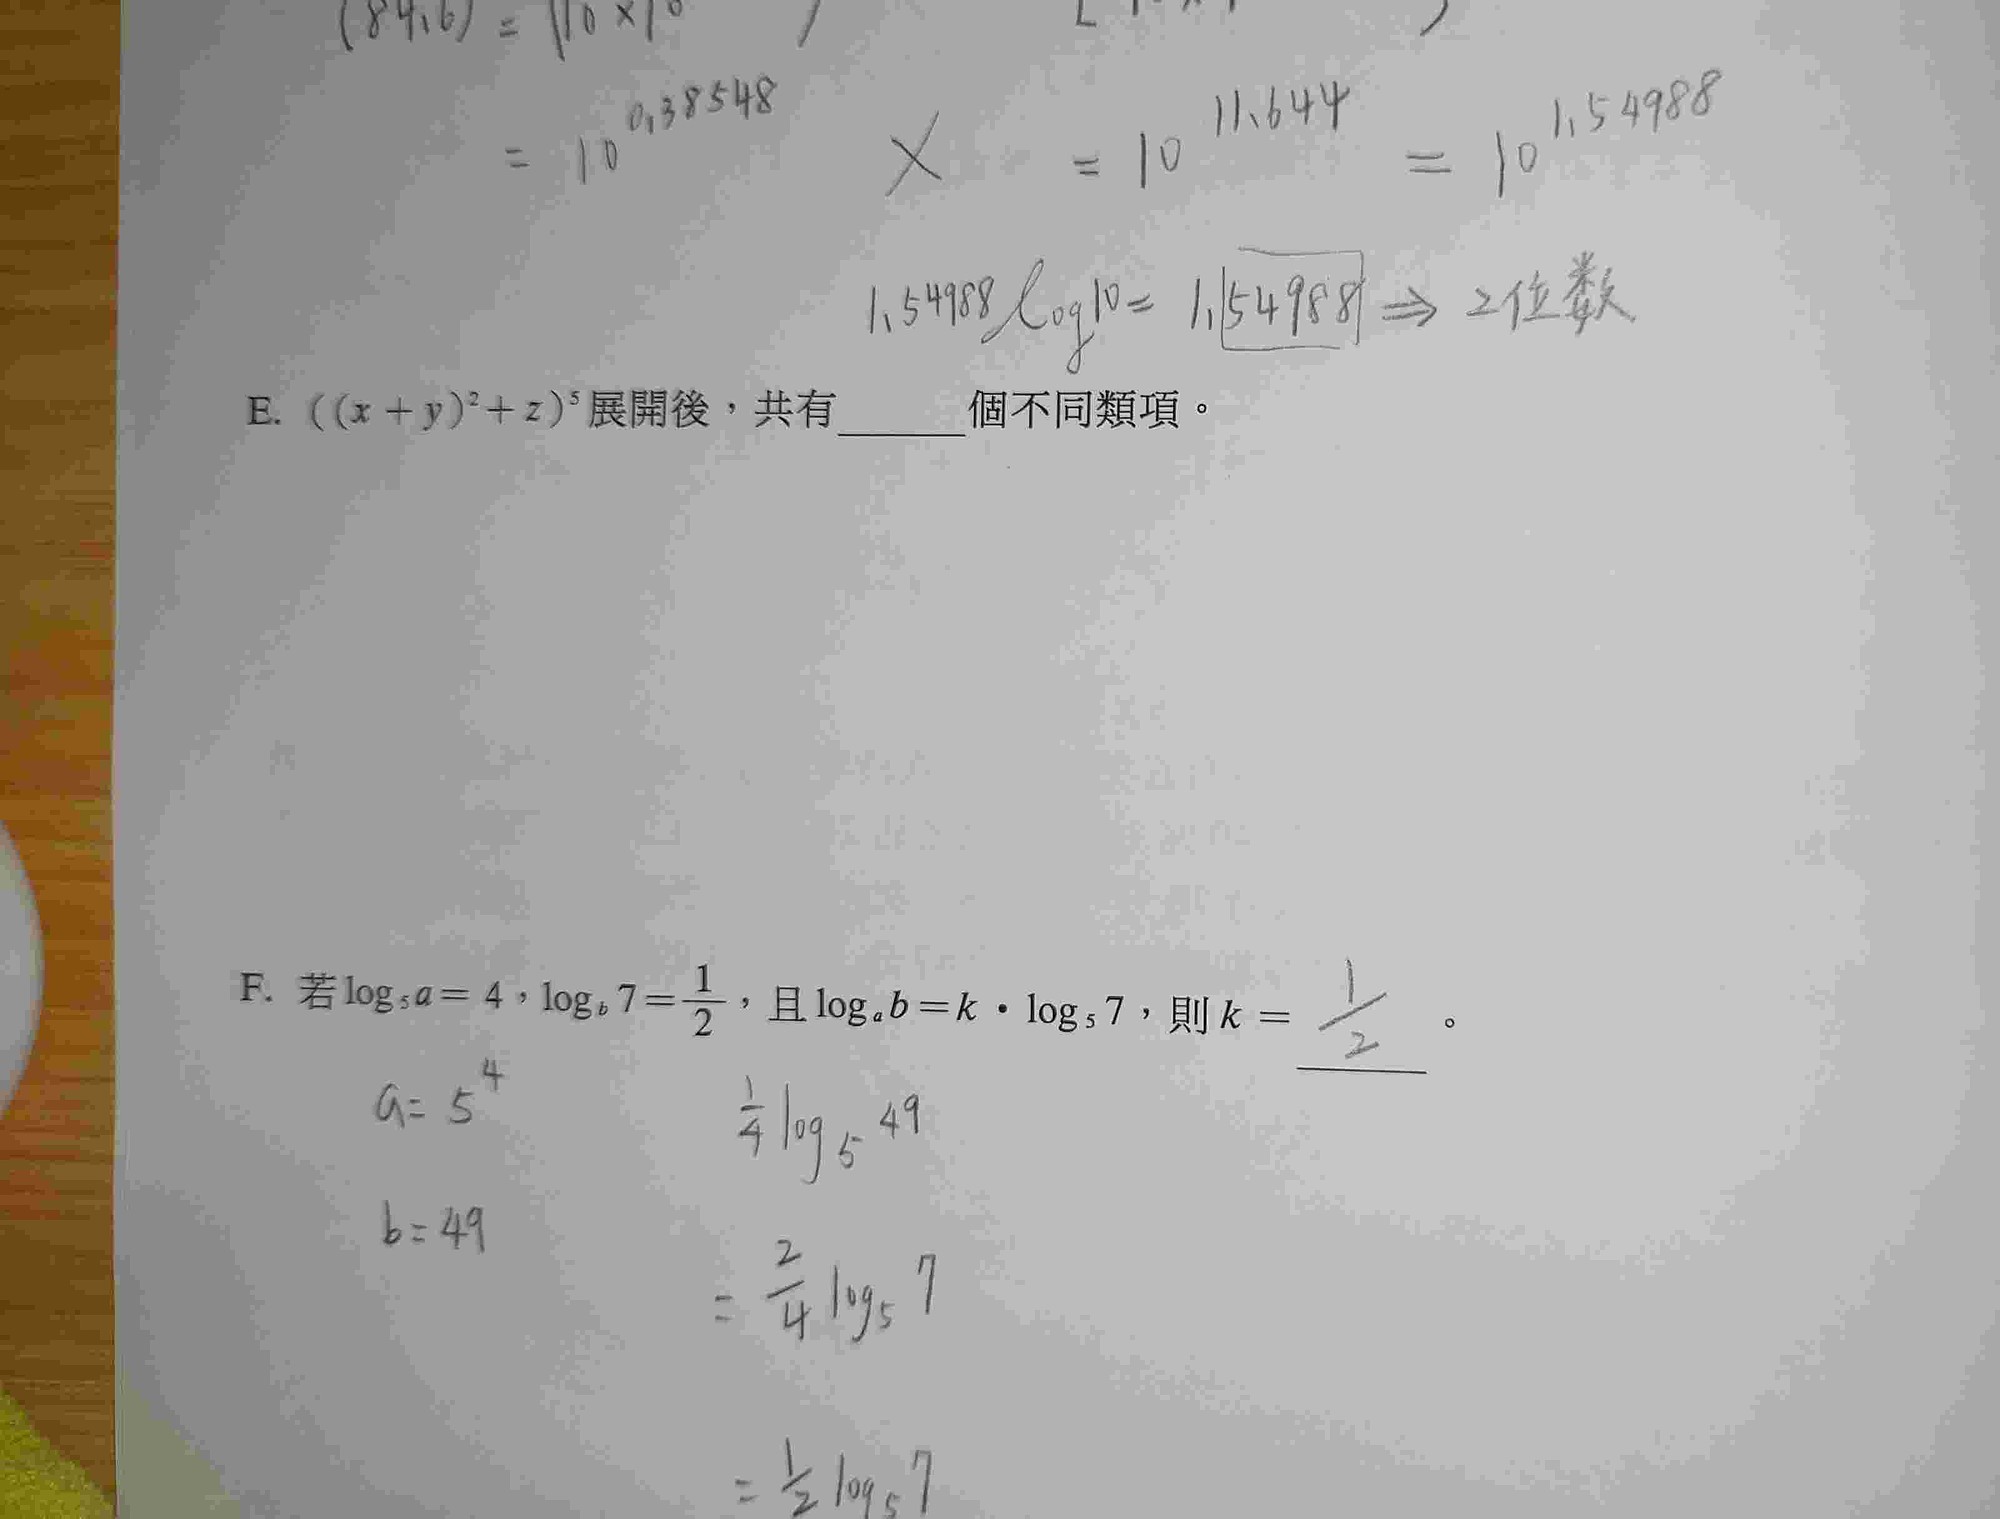 (84.6) = (10 × 10
= 10^0.38548 × = 10^11.644 = 10^1.54988
1.54988 log10 = 1.54988 ⇒ 2位数
E. ((x + y)²+ z)⁵展開後，共有______個不同類項。
F. 若log₅a = 4，log_b 7 = 1/2，且log_a b = k・log₅7，則k = 1/2。
a = 5⁴ 1/4 log₅ 49
b = 49
= 2/4 log₅ 7
= 1/2 log₅ 7